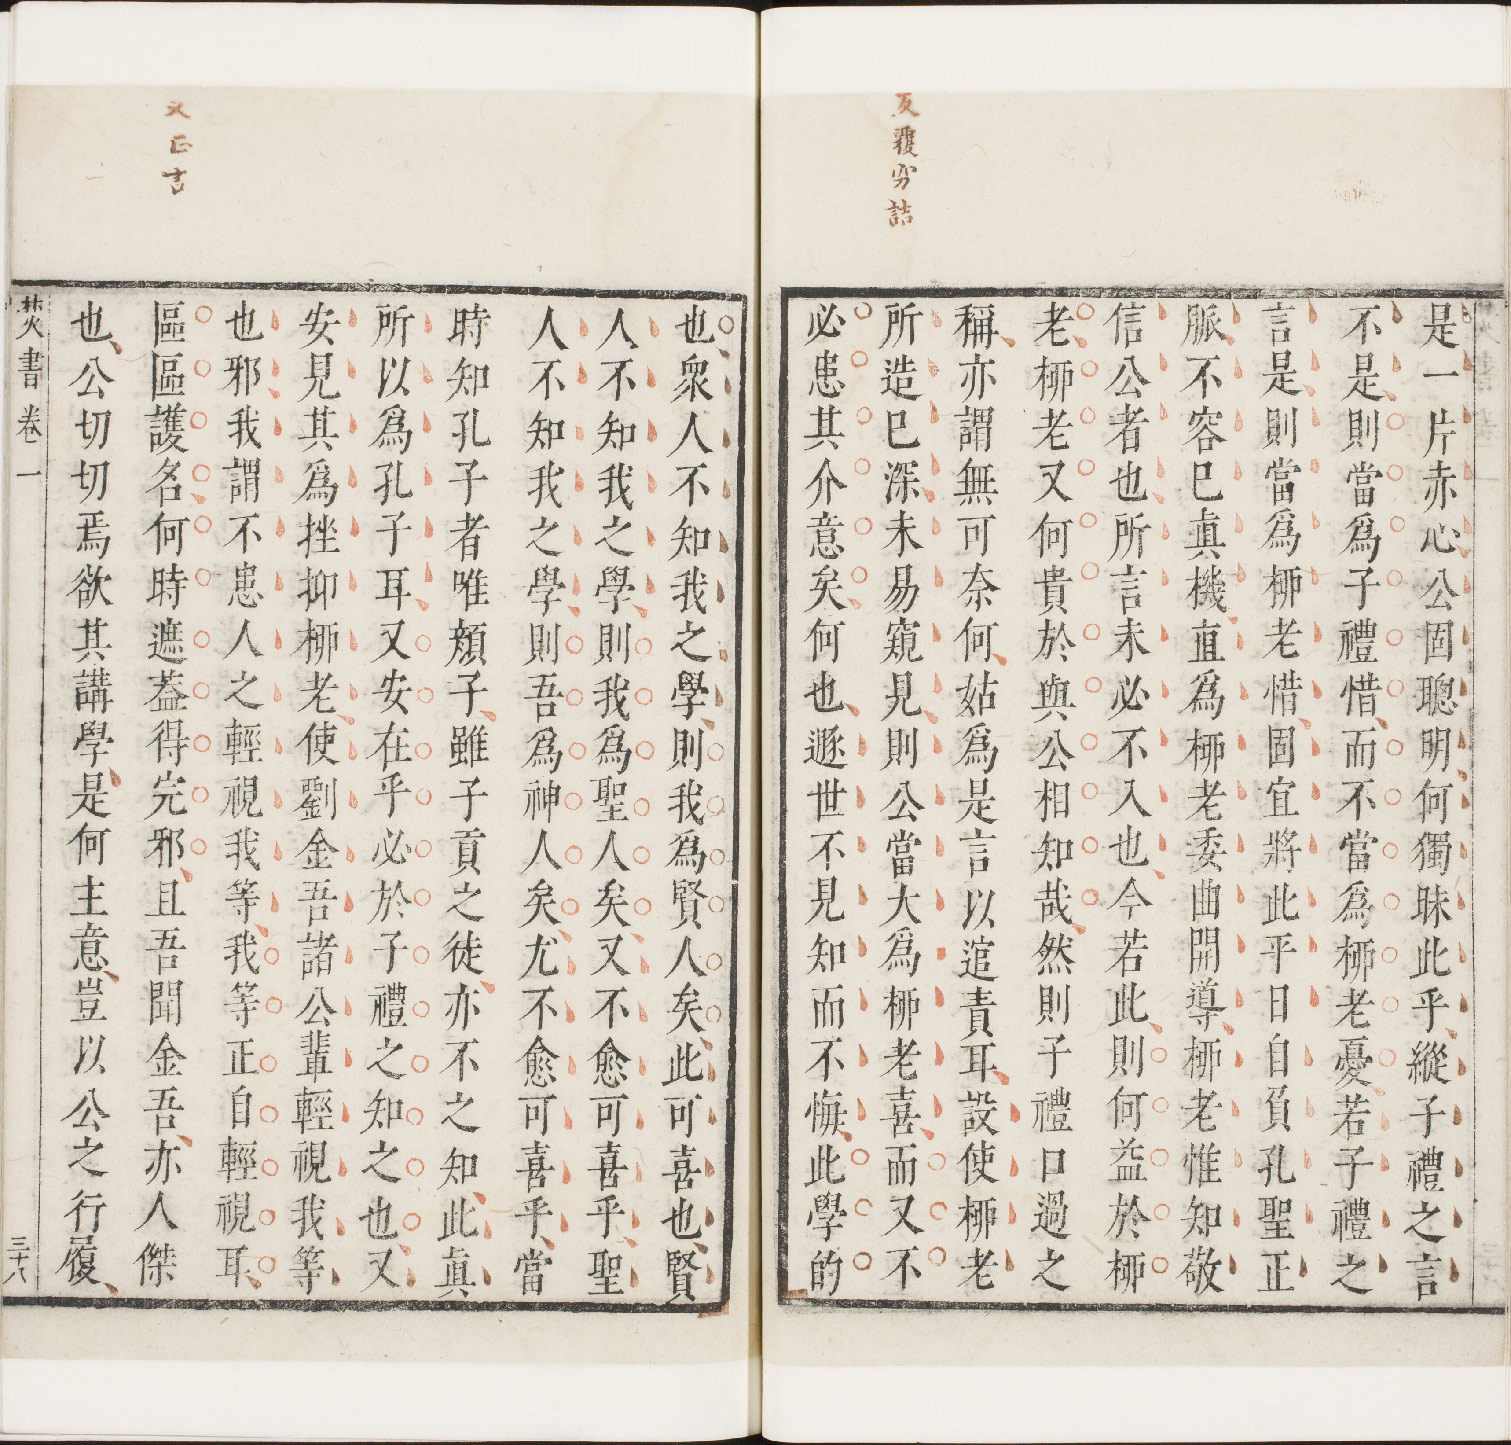 反覆窮詰
是一片赤心公固聰明何獨昧此乎縱子禮之言
不是則當爲子禮惜而不當爲柳老憂若子禮之
言是則當爲柳老惜固宜將此平日自負孔聖正
脈不容已眞機直爲柳老委曲開導柳老惟知敬
信公者也所言未必不入也今若此則何益於柳
老柳老又何貴於與公相知哉然則子禮口過之
稱亦謂無可奈何姑爲是言以逭責耳設使柳老
所造已深未易窺見則公當大爲柳老喜而又不
必患其介意矣何也遯世不見知而不悔此學的
也衆人不知我之學則我爲賢人矣此可喜也賢
人不知我之學則我爲聖人矣又不愈可喜乎聖
人不知我之學則吾爲神人矣尤不愈可喜乎當
時知孔子者唯顔子雖子貢之徒亦不之知此眞
所以爲孔子耳又安在乎必於子禮之知之也又
安見其爲挫抑柳老使劉金吾諸公輩輕視我等
也邪我謂不患人之輕視我等我等正自輕視耳
區區護名何時遮葢得完邪且吾聞金吾亦人傑
也公切切焉欲其講學是何主意豈以公之行履
正言
焚書 卷一
三十八